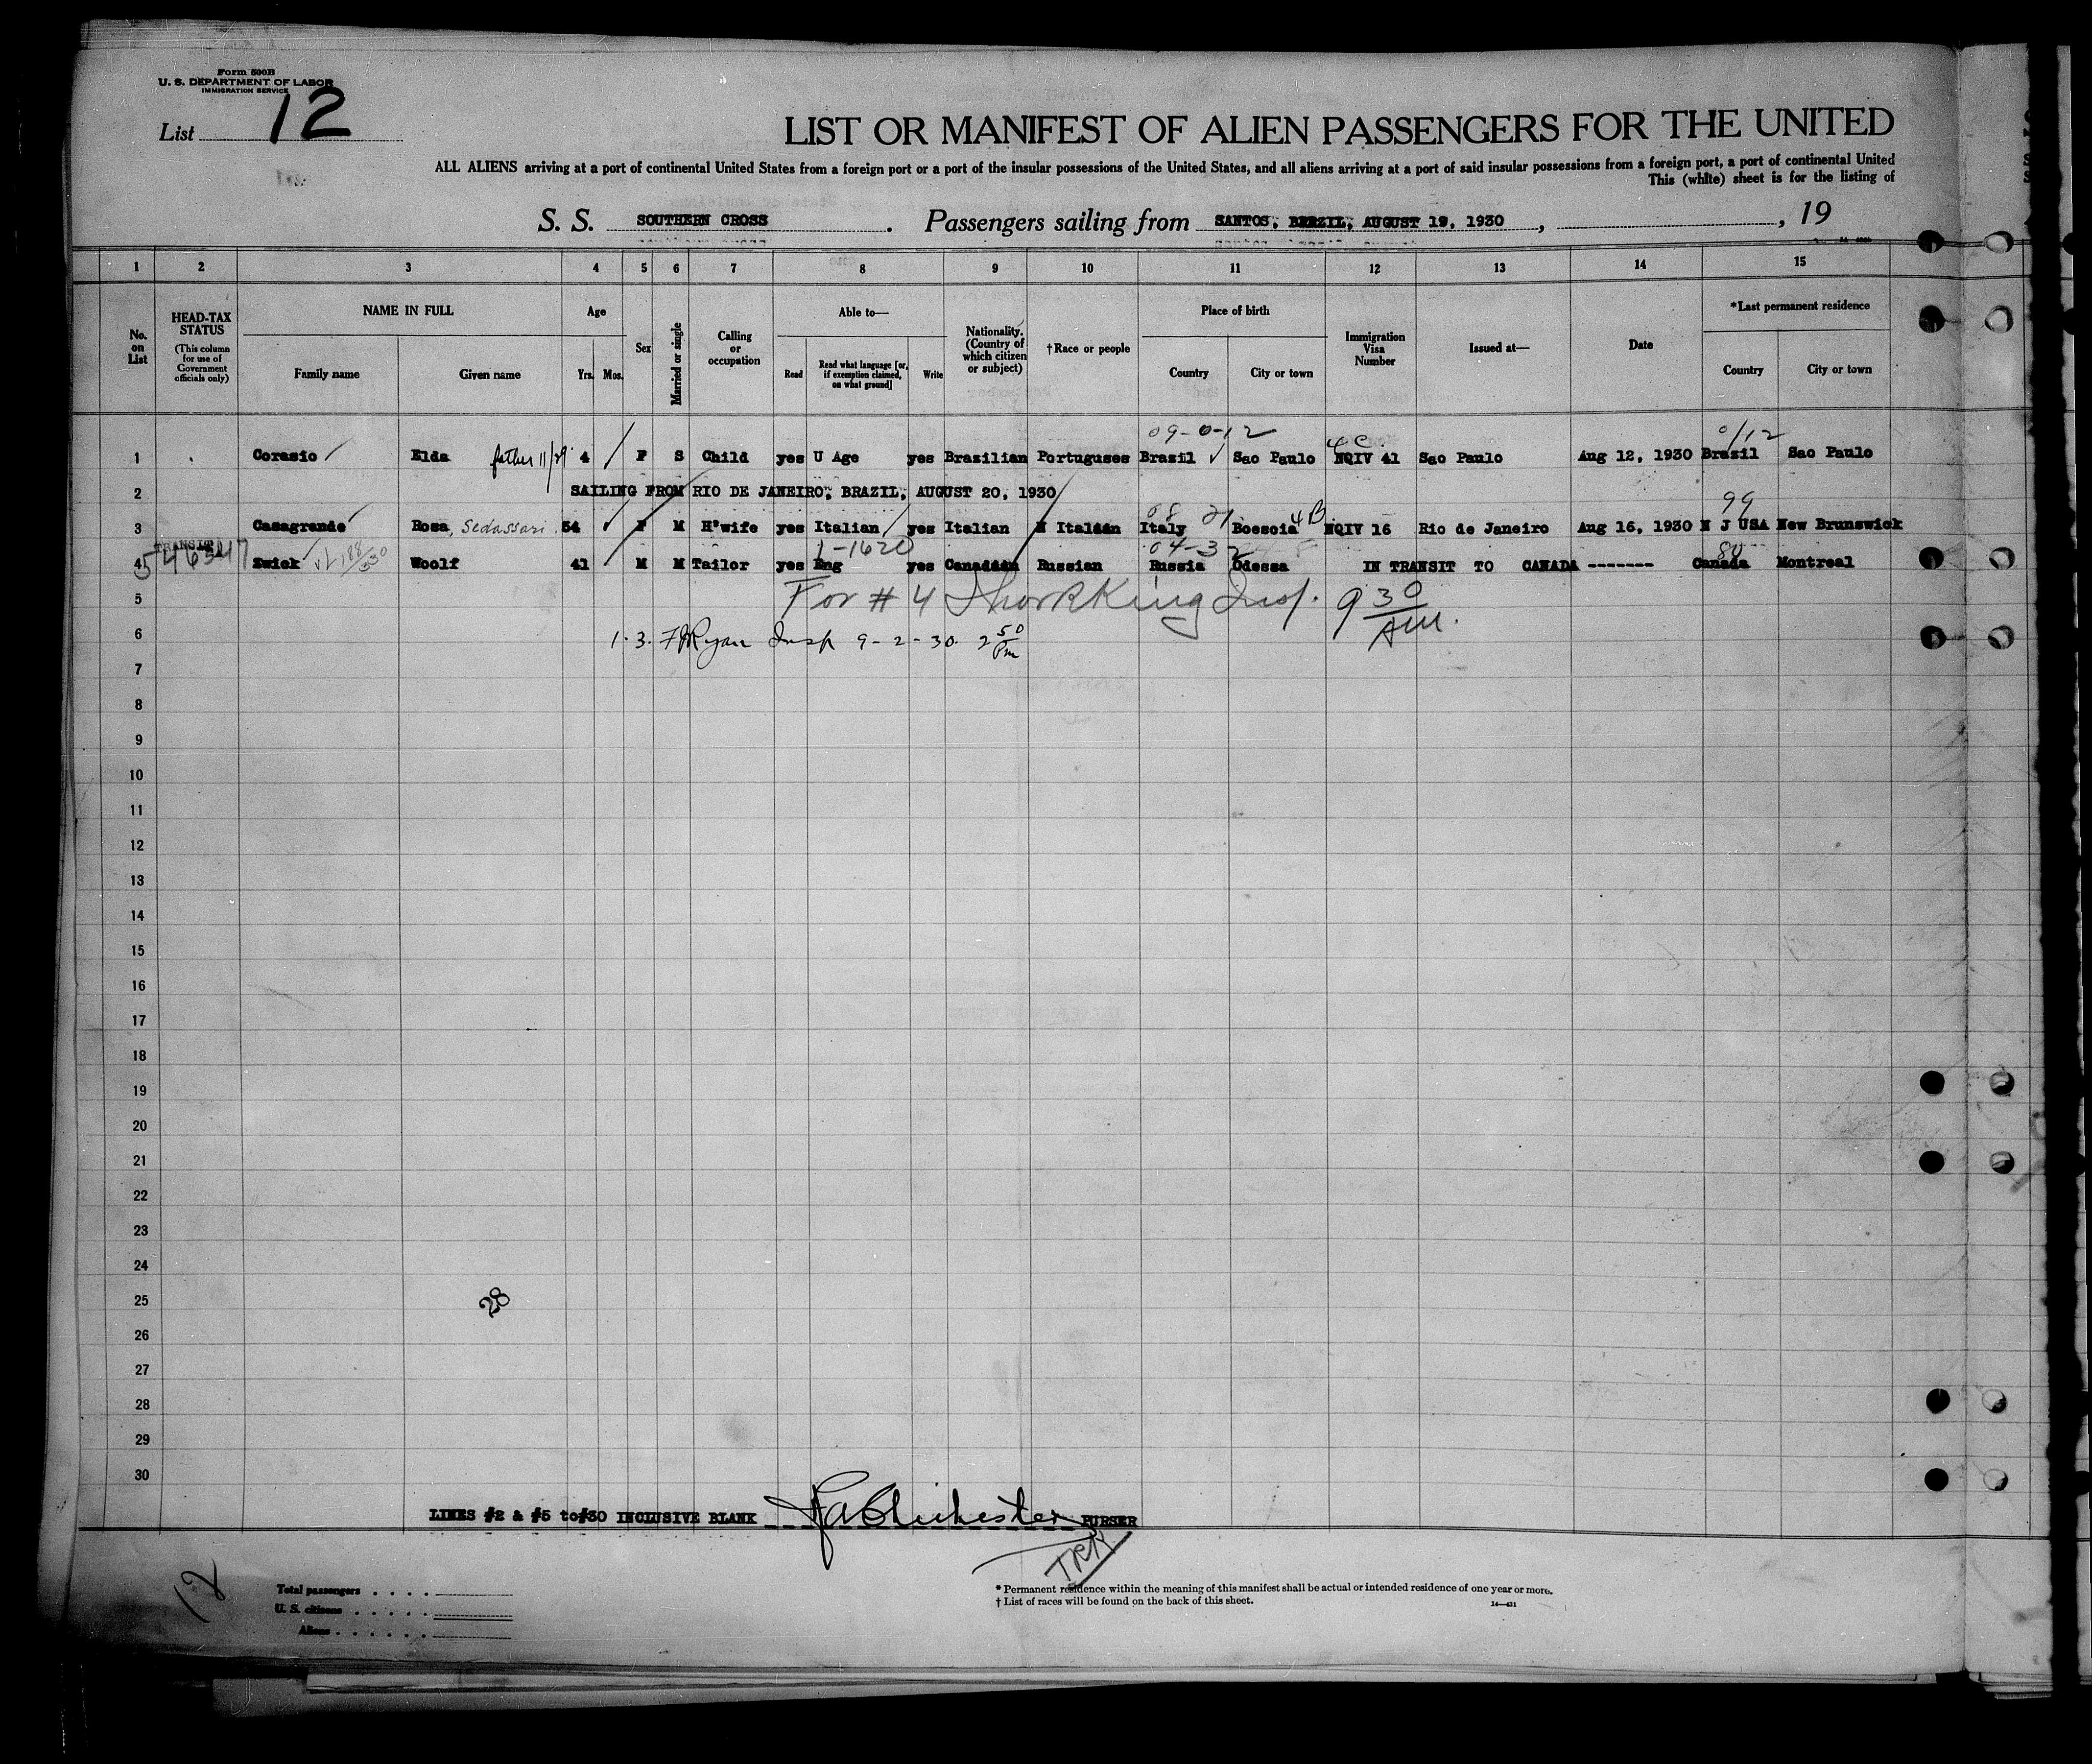 Form 500B
U. S. DEPARTMENT OF LABOR
IMMIGRATION SERVICE
List 12
LIST OR MANIFEST OF ALIEN PASSENGERS FOR THE UNITED
ALL ALIENS arriving at a port of continental United States from a foreign port or a port of the insular possessions of the United States, and all aliens arriving at a port of said insular possessions from a foreign port, a port of continental United
This (white) sheet is for the listing of
S. S. SOUTHERN CROSS . Passengers sailing from SANTOS, BRAZIL, AUGUST 19, 1930 , , 19
1 2 3 4 5 6 7 8 9 10 11 12 13 14 15
No. on List
HEAD-TAX STATUS
(This column for use of Government officials only)
NAME IN FULL
Family name Given name
Age
Yrs. Mos.
Sex
Married or single
Calling or occupation
Able to—
Read Read what language [or, if exemption claimed, on what ground] Write
Nationality. (Country of which citizen or subject)
†Race or people
Place of birth
Country City or town
Immigration Visa Number
Issued at—
Date
*Last permanent residence
Country City or town
09-0-12 4c 0/12
1 Corasio Elda father 11/29 4 F S Child yes U Age yes Brazilian Portuguses Brasil Sao Paulo NQIV 41 Sao Paulo Aug 12, 1930 Brazil Sao Paulo
2 SAILING FROM RIO DE JANEIRO, BRAZIL, AUGUST 20, 1930
08 21 4B 99
3 Casagrande Rosa, Sedassari 54 F M H'wife yes Italian yes Italian N Italian Italy Boescia NQIV 16 Rio de Janeiro Aug 16, 1930 N J USA New Brunswick
TRANSIT 1-1620 04-32
4 Zwick Woolf 41 M M Tailor yes Eng yes Canadian Russian Russia Odessa IN TRANSIT TO CANADA ------- Canada Montreal
5 For #4 King Insp. 9 30 AM.
6 1. 3. Ryan Insp 9-2-30 2 50 Pm
7
8
9
10
11
12
13
14
15
16
17
18
19
20
21
22
23
24
25
28
26
27
28
29
30
LINES #2 & #5 to#30 INCLUSIVE BLANK Chichester PURSER
12
Total passengers . . . .
U. S. citizens . . . . .
Aliens . . . . . .
* Permanent residence within the meaning of this manifest shall be actual or intended residence of one year or more.
† List of races will be found on the back of this sheet.
14—421